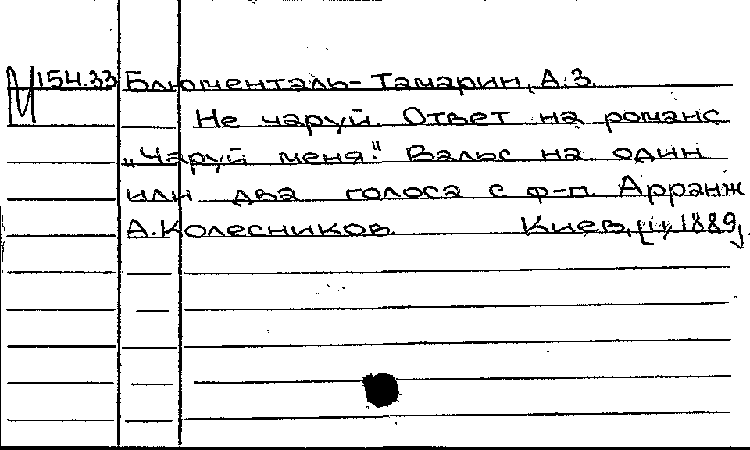 М 154.33 Блюменталь-Тамарин, А.З.
Не чаруй. Ответ на романс
„Чаруй меня." Вальс на один
или два голоса с ф-п. Арранж
А.Колесников. Киев, 1889